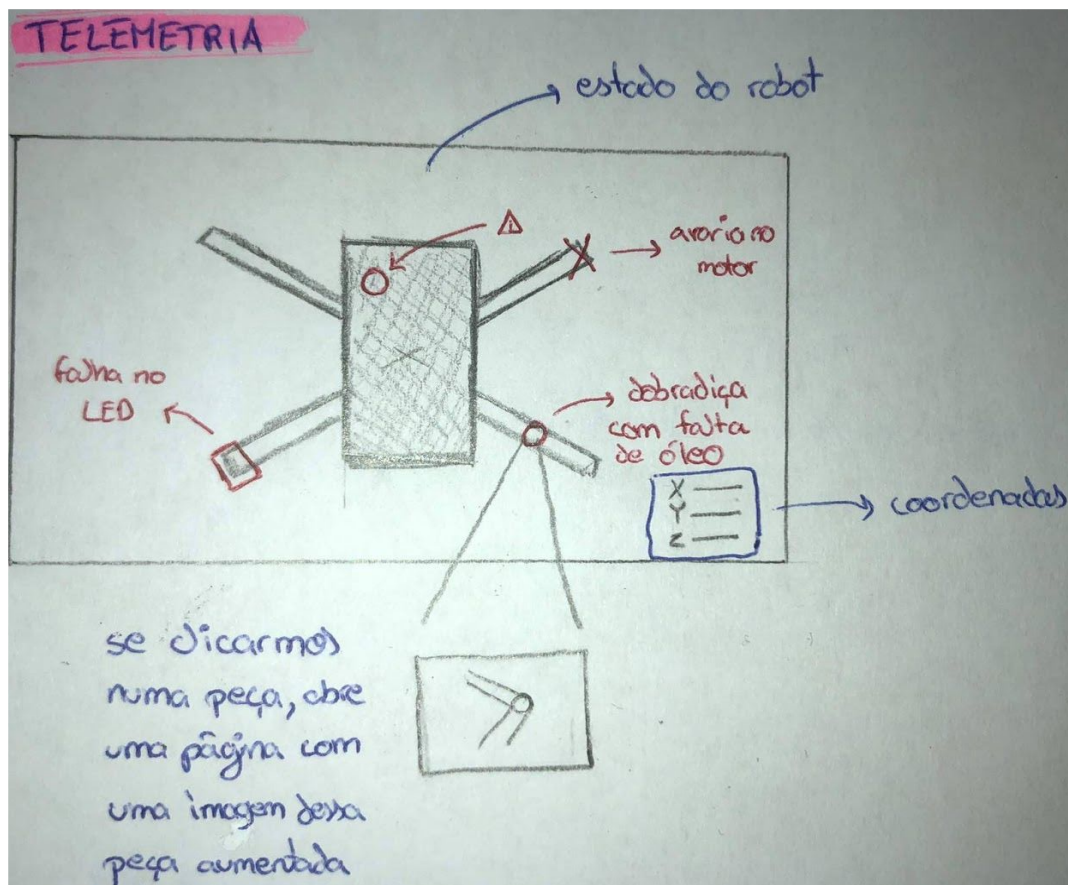 TELEMETRIA
estado do robot
avaria no
motor
falha no
LED
dobradiça
com falta
de óleo
X
Y
Z
coordenadas
se clicarmos
numa peça, abre
uma página com
uma imagem dessa
peça aumentada